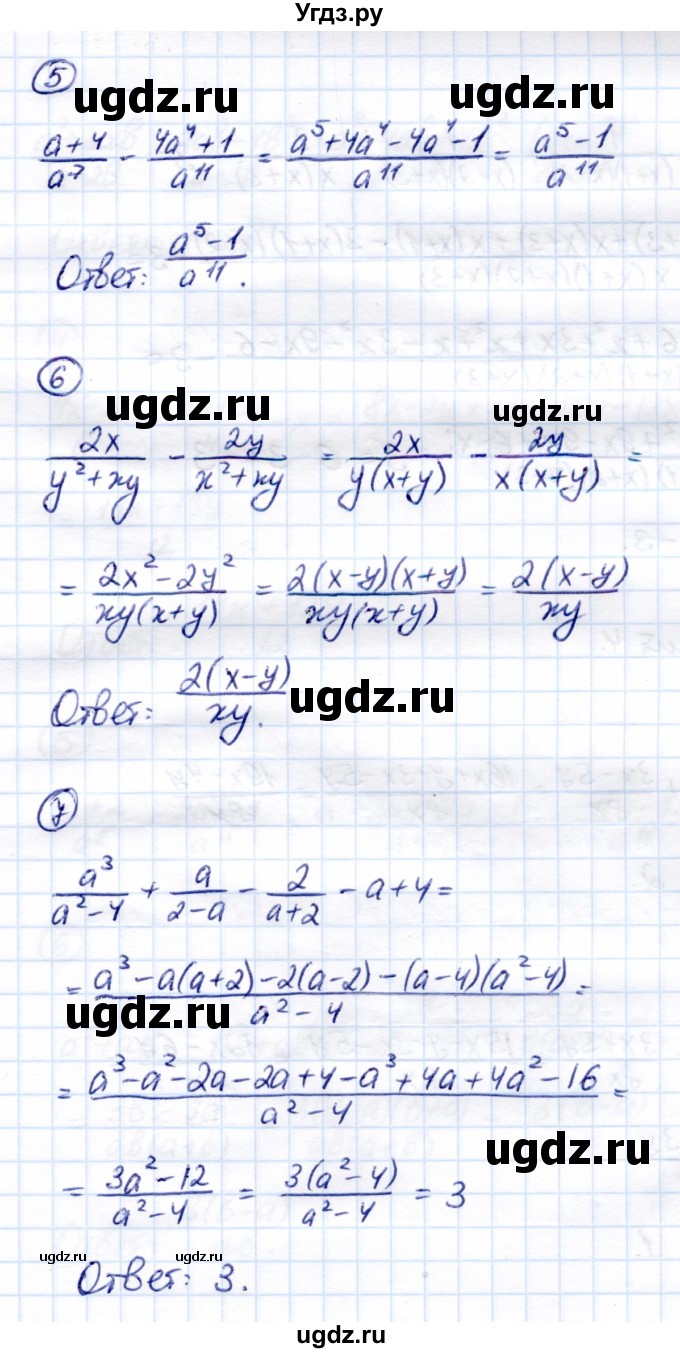 Угдз.ру
5
ugdz.ru ugdz.ru
(a+4)/a^7 - (4a^4+1)/a^11 = (a^5+4a^4-4a^4-1)/a^11 = (a^5-1)/a^11
Ответ: (a^5-1)/a^11.
6
ugdz.ru ugdz.ru
2x/(y^2+xy) - 2y/(x^2+xy) = 2x/(y(x+y)) - 2y/(x(x+y)) =
= (2x^2-2y^2)/(xy(x+y)) = (2(x-y)(x+y))/(xy(x+y)) = (2(x-y))/(xy)
Ответ: (2(x-y))/(xy).
ugdz.ru
7
a^3/(a^2-4) + a/(2-a) - 2/(a+2) - a+4=
= (a^3-a(a+2)-2(a-2)-(a-4)(a^2-4))/(a^2-4) =
ugdz.ru
= (a^3-a^2-2a-2a+4-a^3+4a+4a^2-16)/(a^2-4) =
ugdz.ru
= (3a^2-12)/(a^2-4) = (3(a^2-4))/(a^2-4) = 3
ugdz.ru ugdz.ru
Ответ: 3.
ugdz.ru